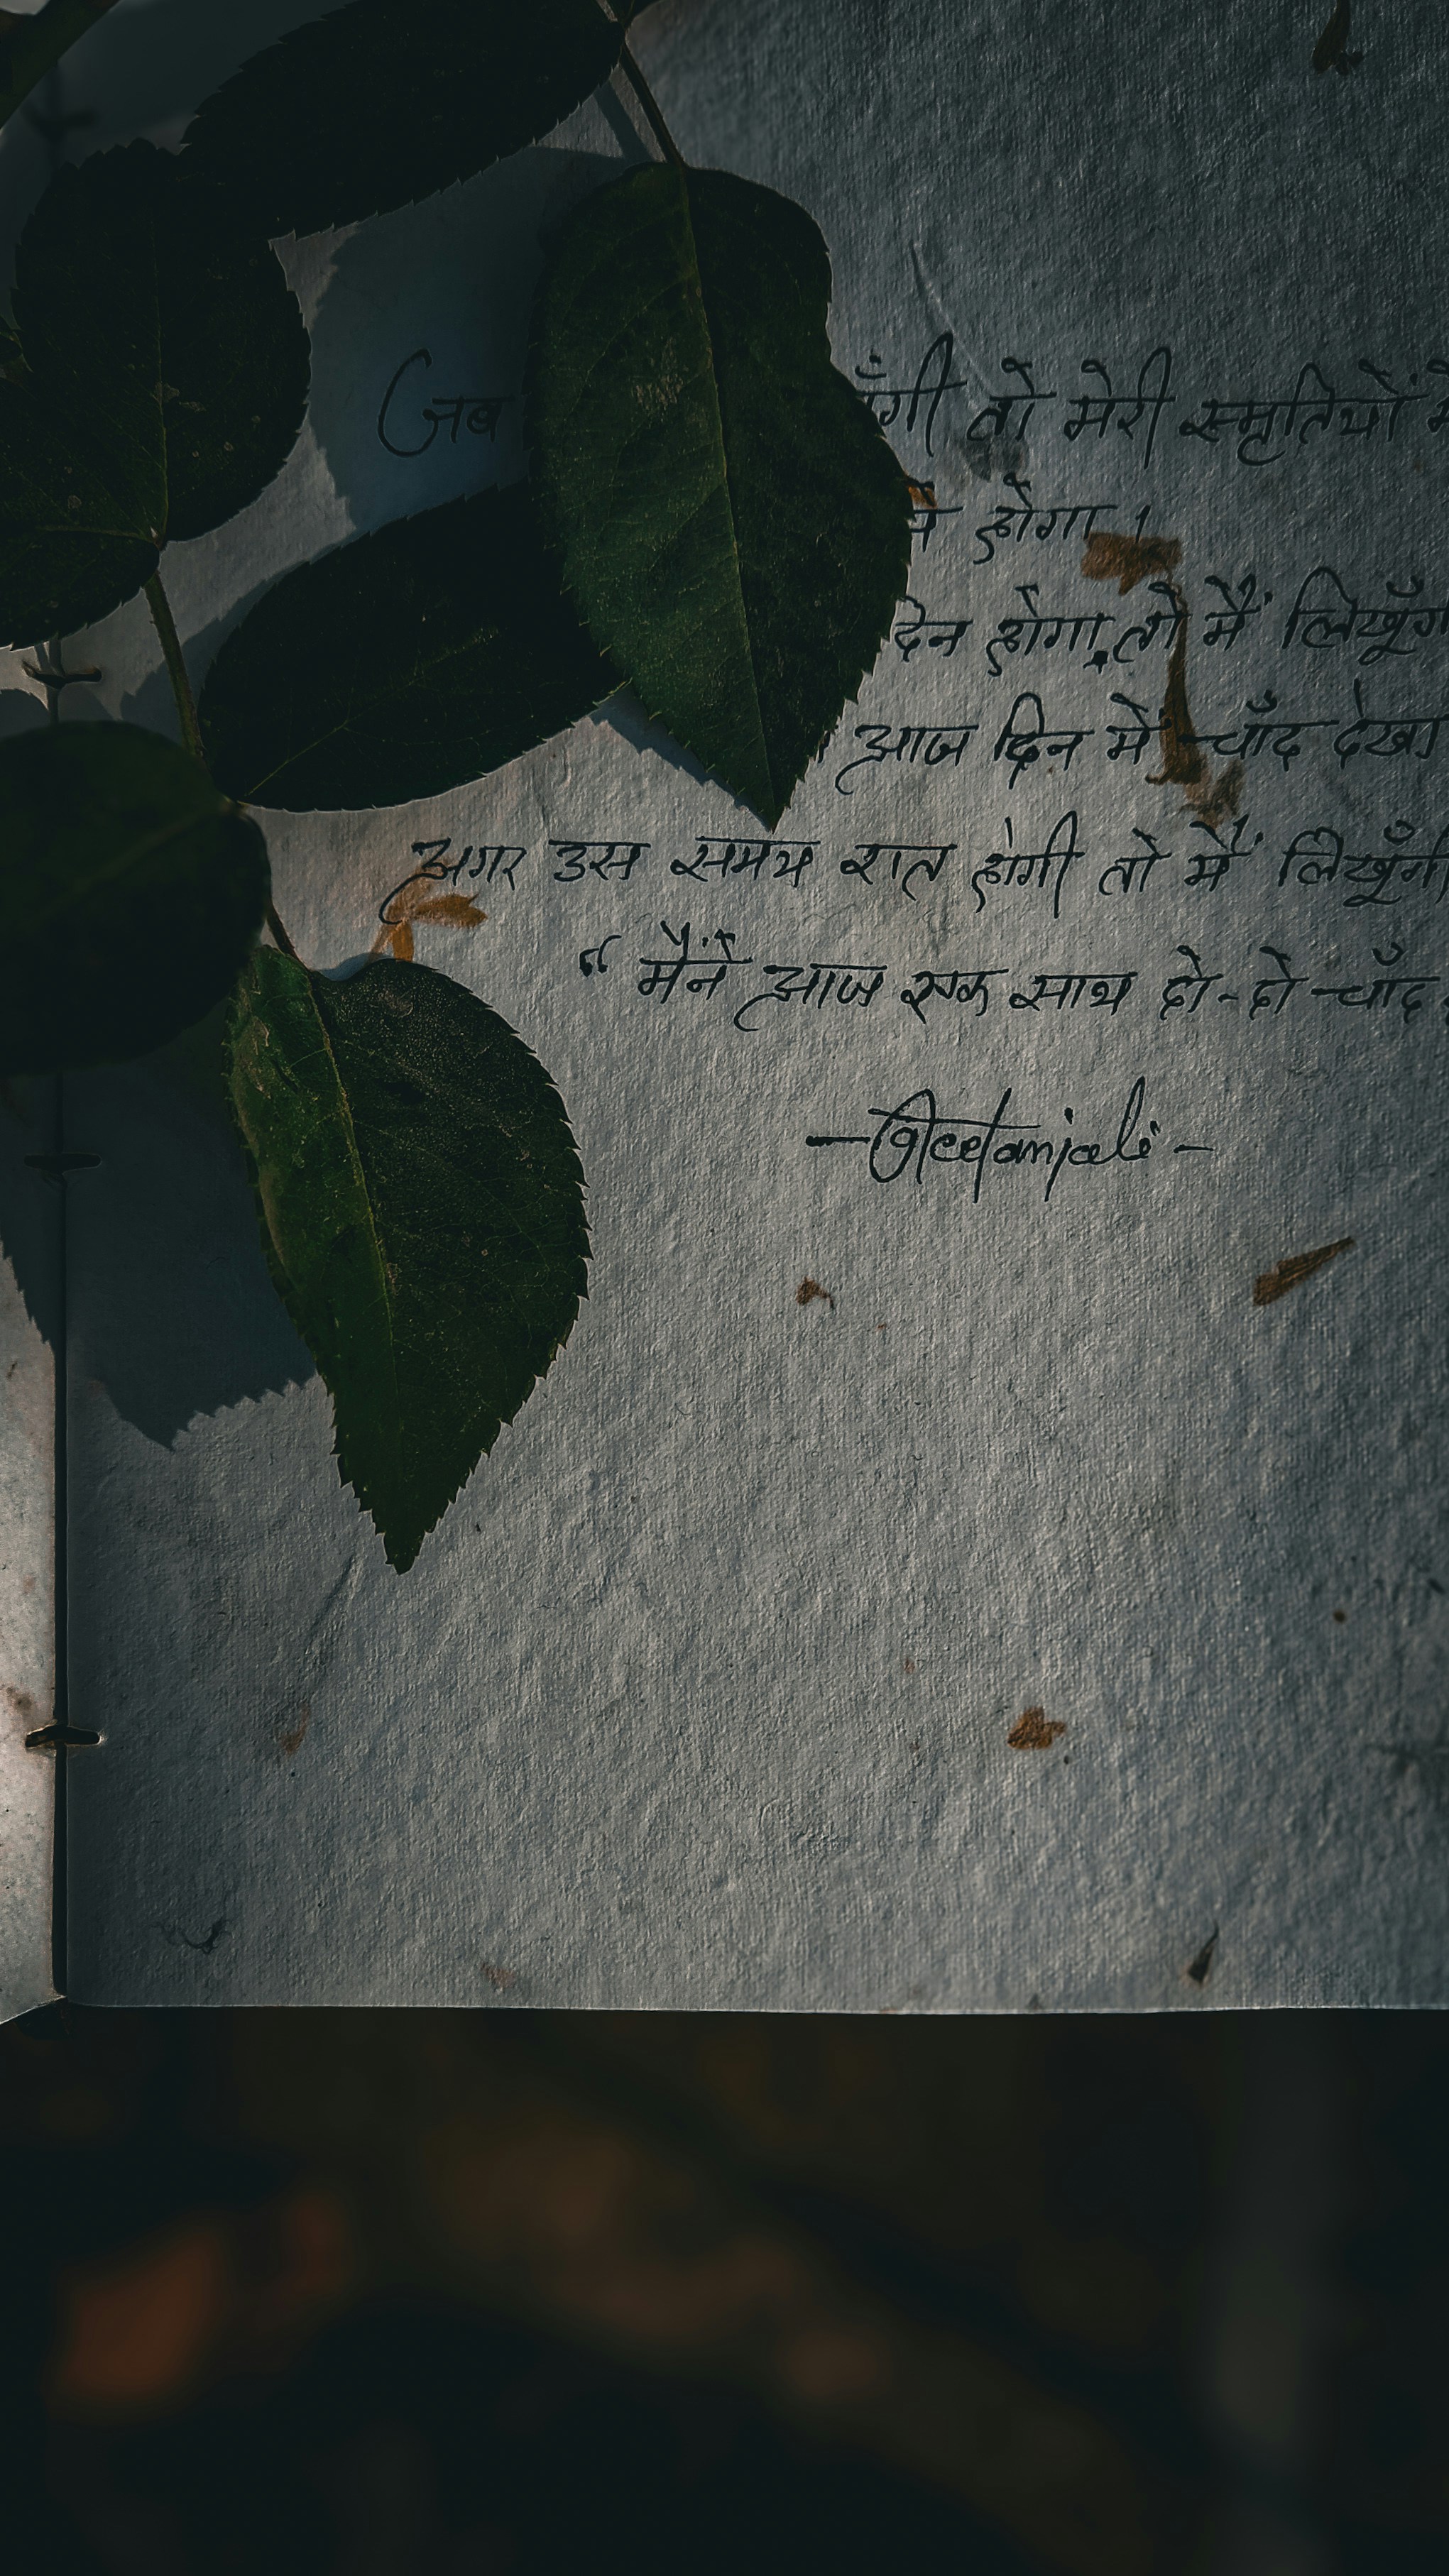 जब ँगी तो मेरी स्मृतियों में
में होगा ।
दिन होगा, तो मैं लिखूँग
आज दिन में चाँद देखा
अगर उस समय रात होगी तो मैं लिखूँगी
“ मैंने आज एक साथ दो-दो चाँद
—Geetanjali-